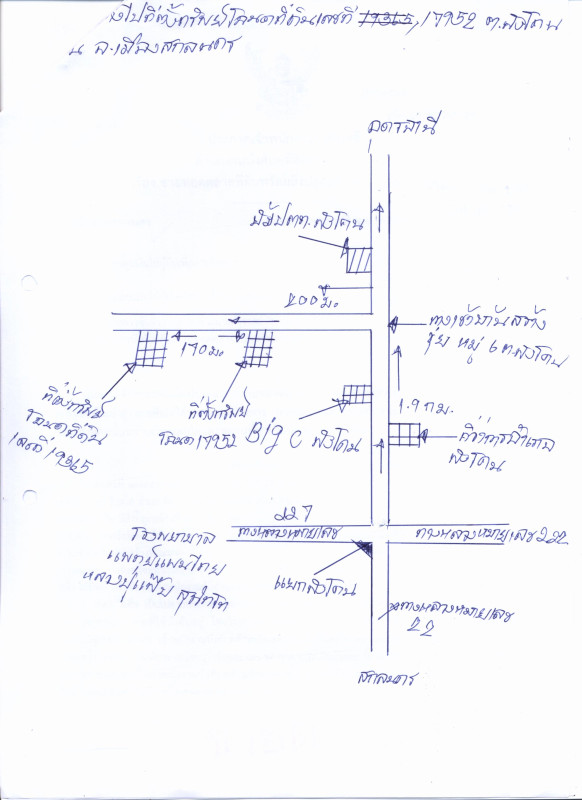 ไปที่ตั้งทรัพย์โฉนดที่ดินเลขที่ 19365, 17952 ต.พังโคน
อ.เมืองสกลนคร
อุดรธานี
ปั๊มปตท.พังโคน
200 ม.
170 ม.
ทางเข้าบ้านสร้าง
ขุ่ย หมู่ 6 ต.พังโคน
ที่ตั้งทรัพย์
โฉนดที่ดิน
เลขที่ 19365
ที่ตั้งทรัพย์
โฉนด 17952
Big C พังโคน
1.9 กม.
ที่ว่าการอำเภอ
พังโคน
227
ทางหลวงหมายเลข
ทางหลวงหมายเลข 222
โรงพยาบาล
แพทย์แผนไทย
หลวงปู่แฟ๊บ สุภัทโท
แยกพังโคน
ทางหลวงหมายเลข
22
สกลนคร